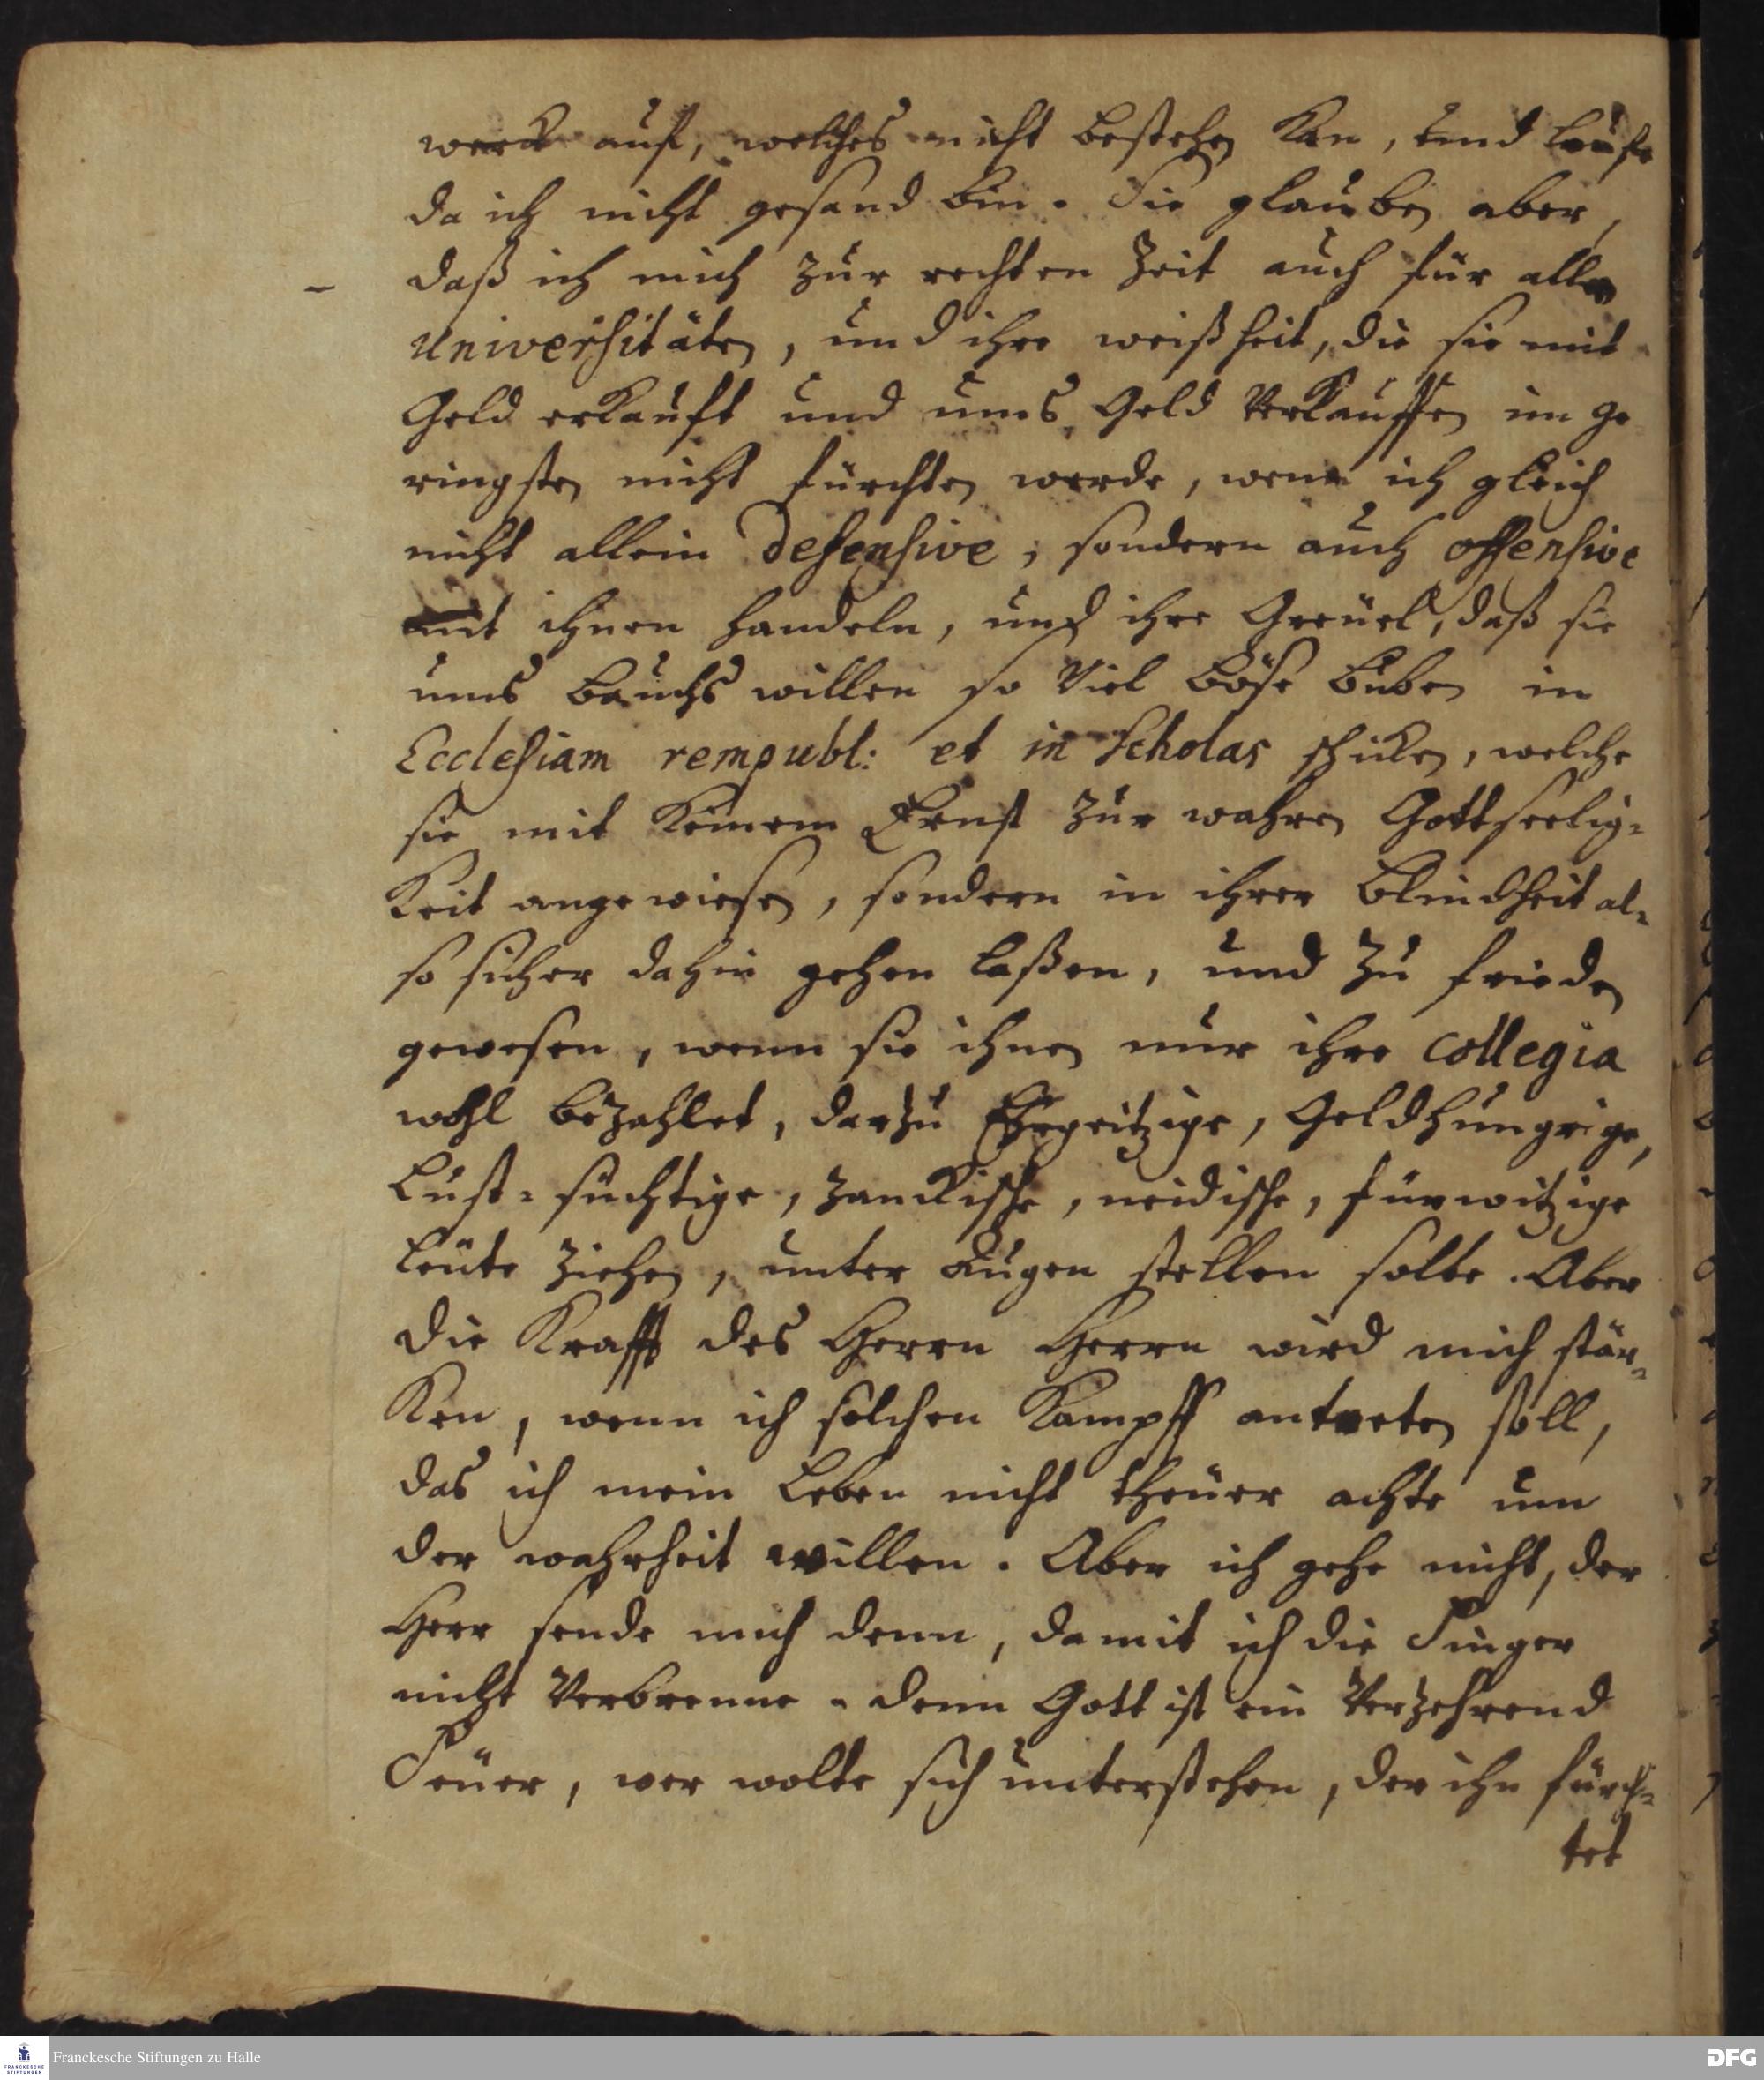 werck auf, welches nicht bestehen kan, und lauffe
da ich nicht gesand bin. Sie glauben aber,
daß ich mich zur rechten Zeit auch für allen
Universitäten, und ihre weißheit, die sie mit
Geld erkaufft und ums Geld verkauffen im ge
ringsten nicht fürchten werde, wenn ich gleich
nicht allein defensive, sondern auch offensive
mit ihnen handeln, und ihre Greüel, daß sie
ums bauchs willen so viel böse buben in
Ecclesiam rempubl: et in Scholas schicken, welche
sie mit keinem Ernst zur wahren Gottseelig-
keit angewiesen, sondern in ihrer blindheit al-
so sicher dahin gehen laßen, und zu frieden
gewesen, wenn sie ihnen nur ihre collegia
wohl bezahlet, darzu Ehrgeitzige, Geldhungrige,
Lust-süchtige, zanckische, neidische, fürwitzige
Leüte ziehen, unter Augen stellen solte. Aber
die Krafft des Herrn Herrn wird mich stär-
ken, wenn ich solchen Kampff antreten soll,
das ich mein Leben nicht theüer achte um
der wahrheit willen. Aber ich gehe nicht, der
Herr sende mich denn, damit ich die Finger
nicht verbrenne. denn Gott ist ein verzehrend
Feüer, wer wolte sich unterstehen, der ihn fürch-
tet
Franckesche Stiftungen zu Halle
DFG